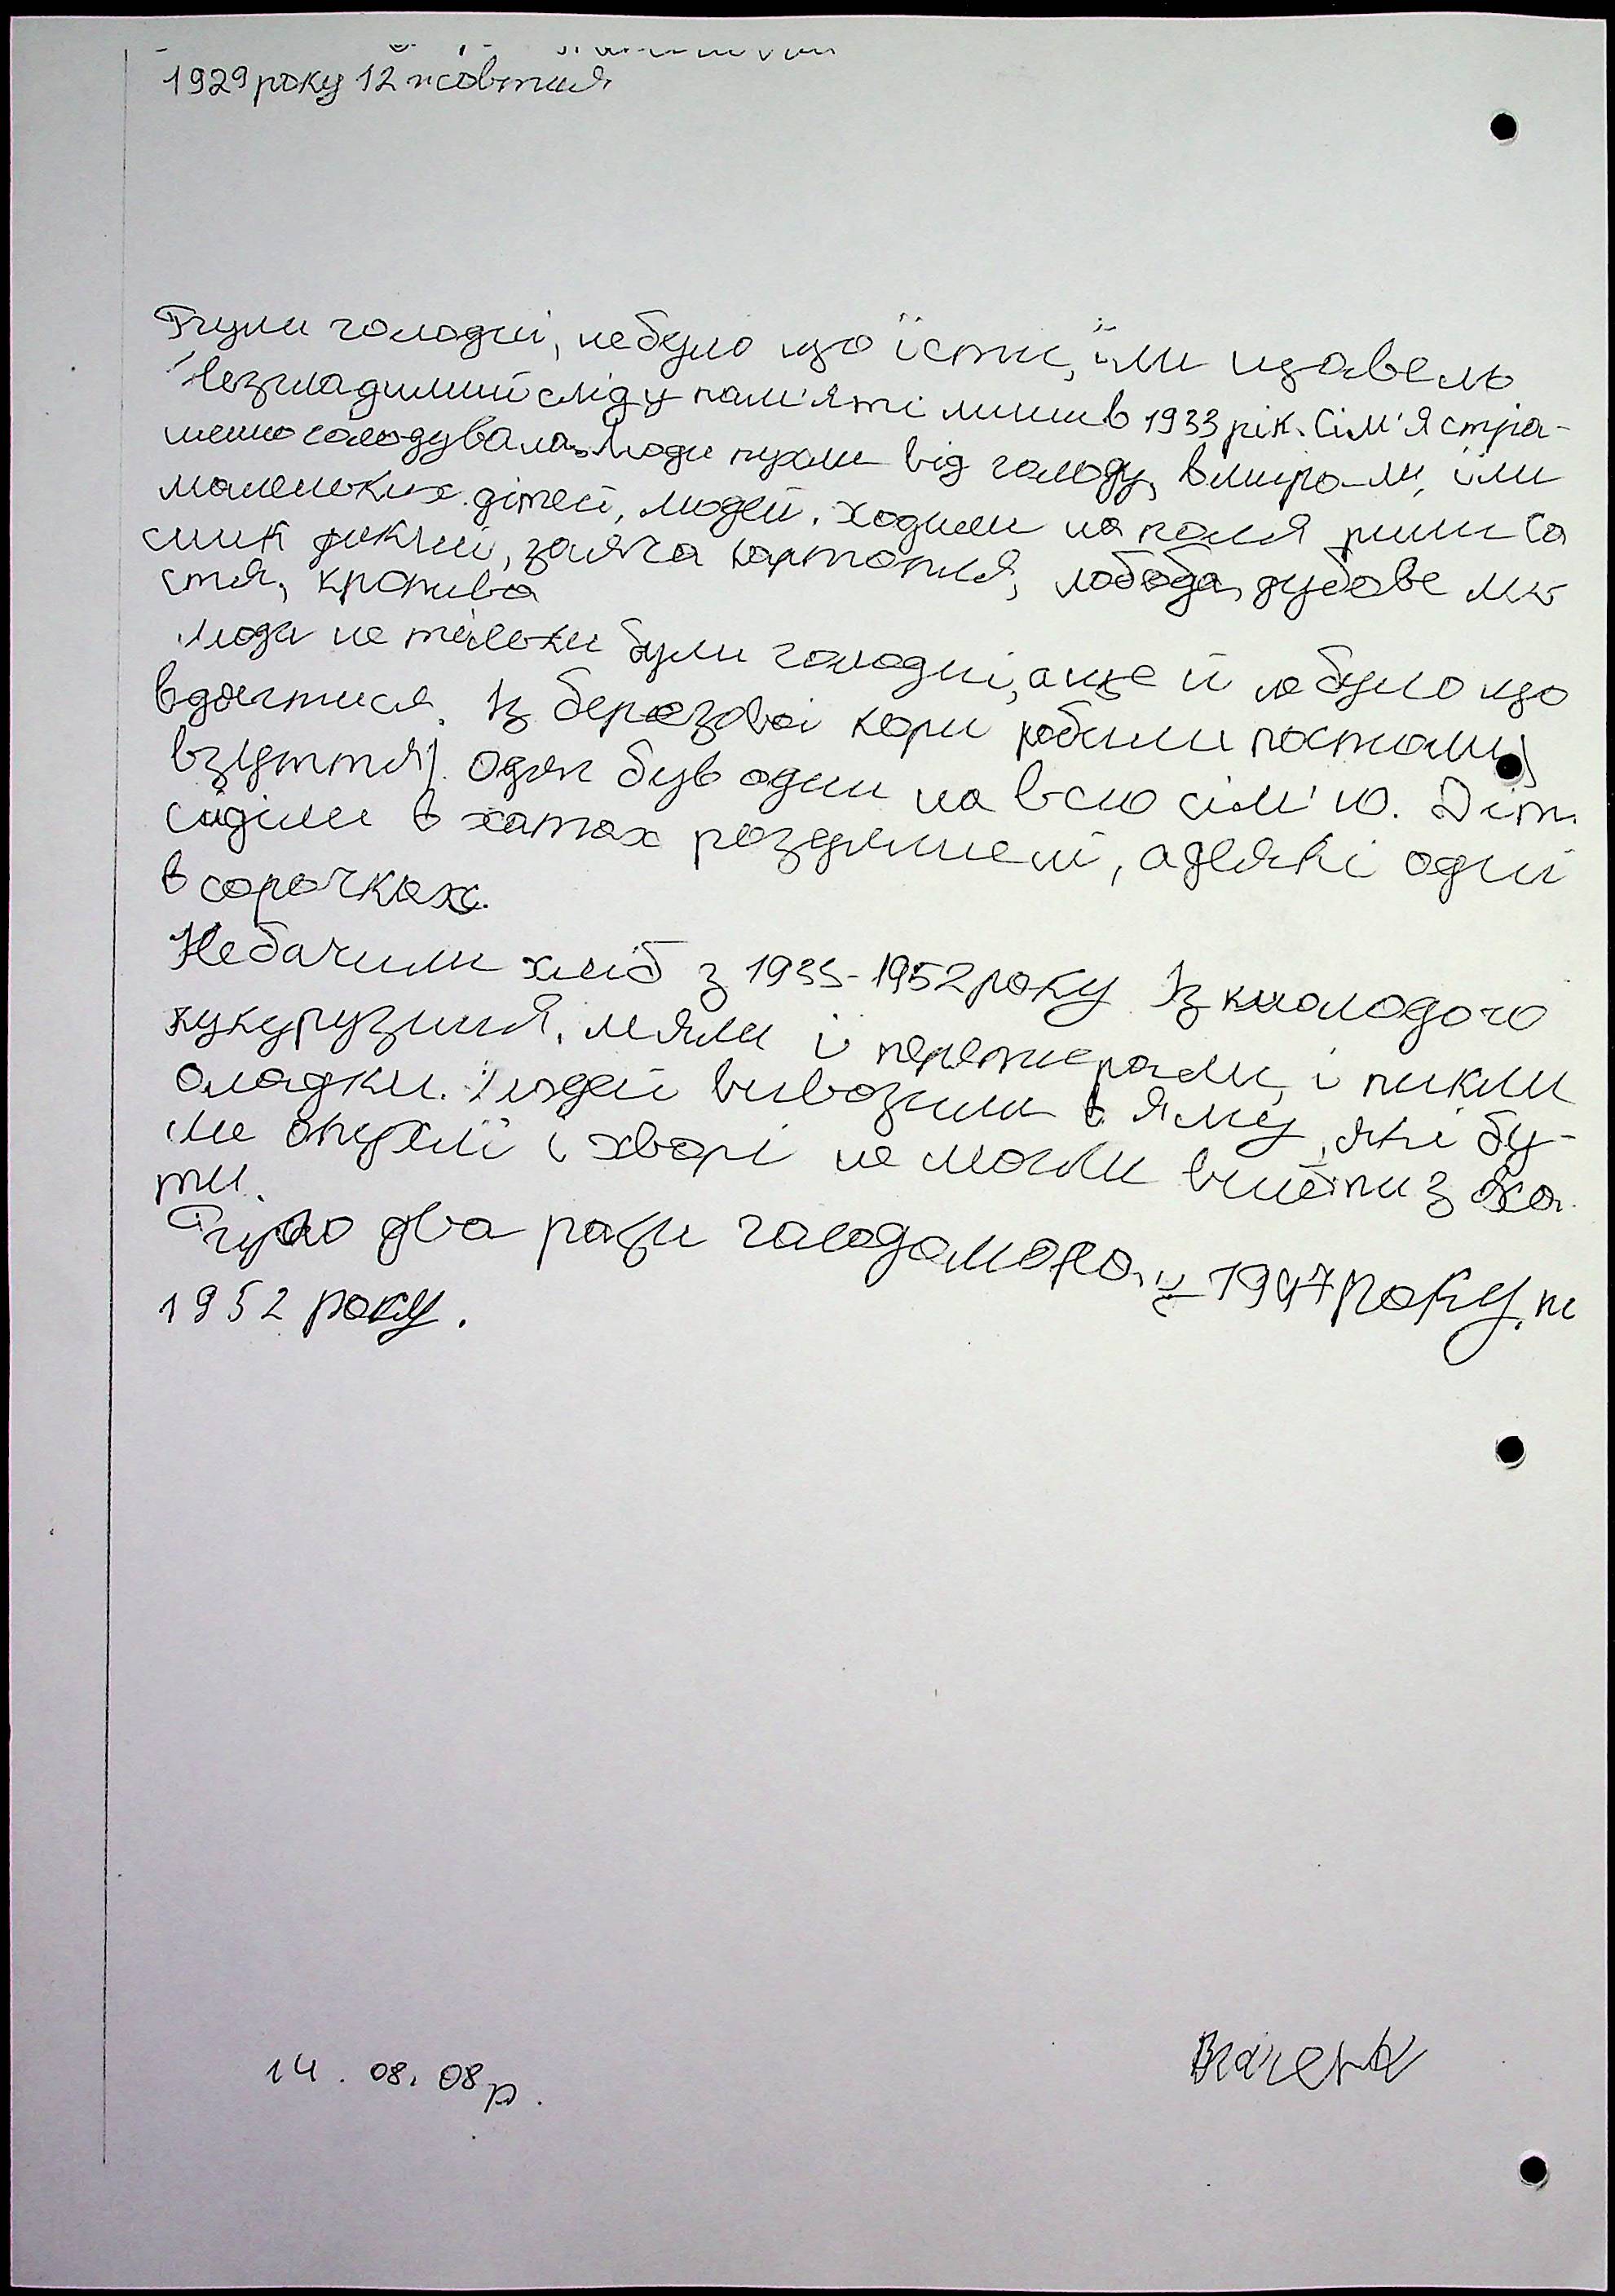 1929 року 12 жовтня
Були голодні, небуло що їсти, їли щавель
Незгладимий слід у пам'яті лишив 1933 рік. Сім'я стра-
шенно голодувала. Люди пухли від голоду, вмира-ли, їли
маленьких дітей, людей. Ходили на поля рили са
заяча картопля, лобода, дубове ли
стя, кропива
Люди не тільки були голодні, а ще й не було що
вдягтися. Із березової кори робили постоли
взуття). Одяг був один на всю сім'ю. Діти
сиділи в хатах роздягнені, а деякі одні
в сорочках.
Небачили хліб з 1933-1952 року Із молодого
кукурузиння, мяли і перетирали, і пикли
оладки. Людей вивозили в яму, які бу-
ли опухлі і хворі не могли вийти з ха
ти.
Було два рази голодомора, з 1947 року, по
1952 року.
14. 08. 08 р.